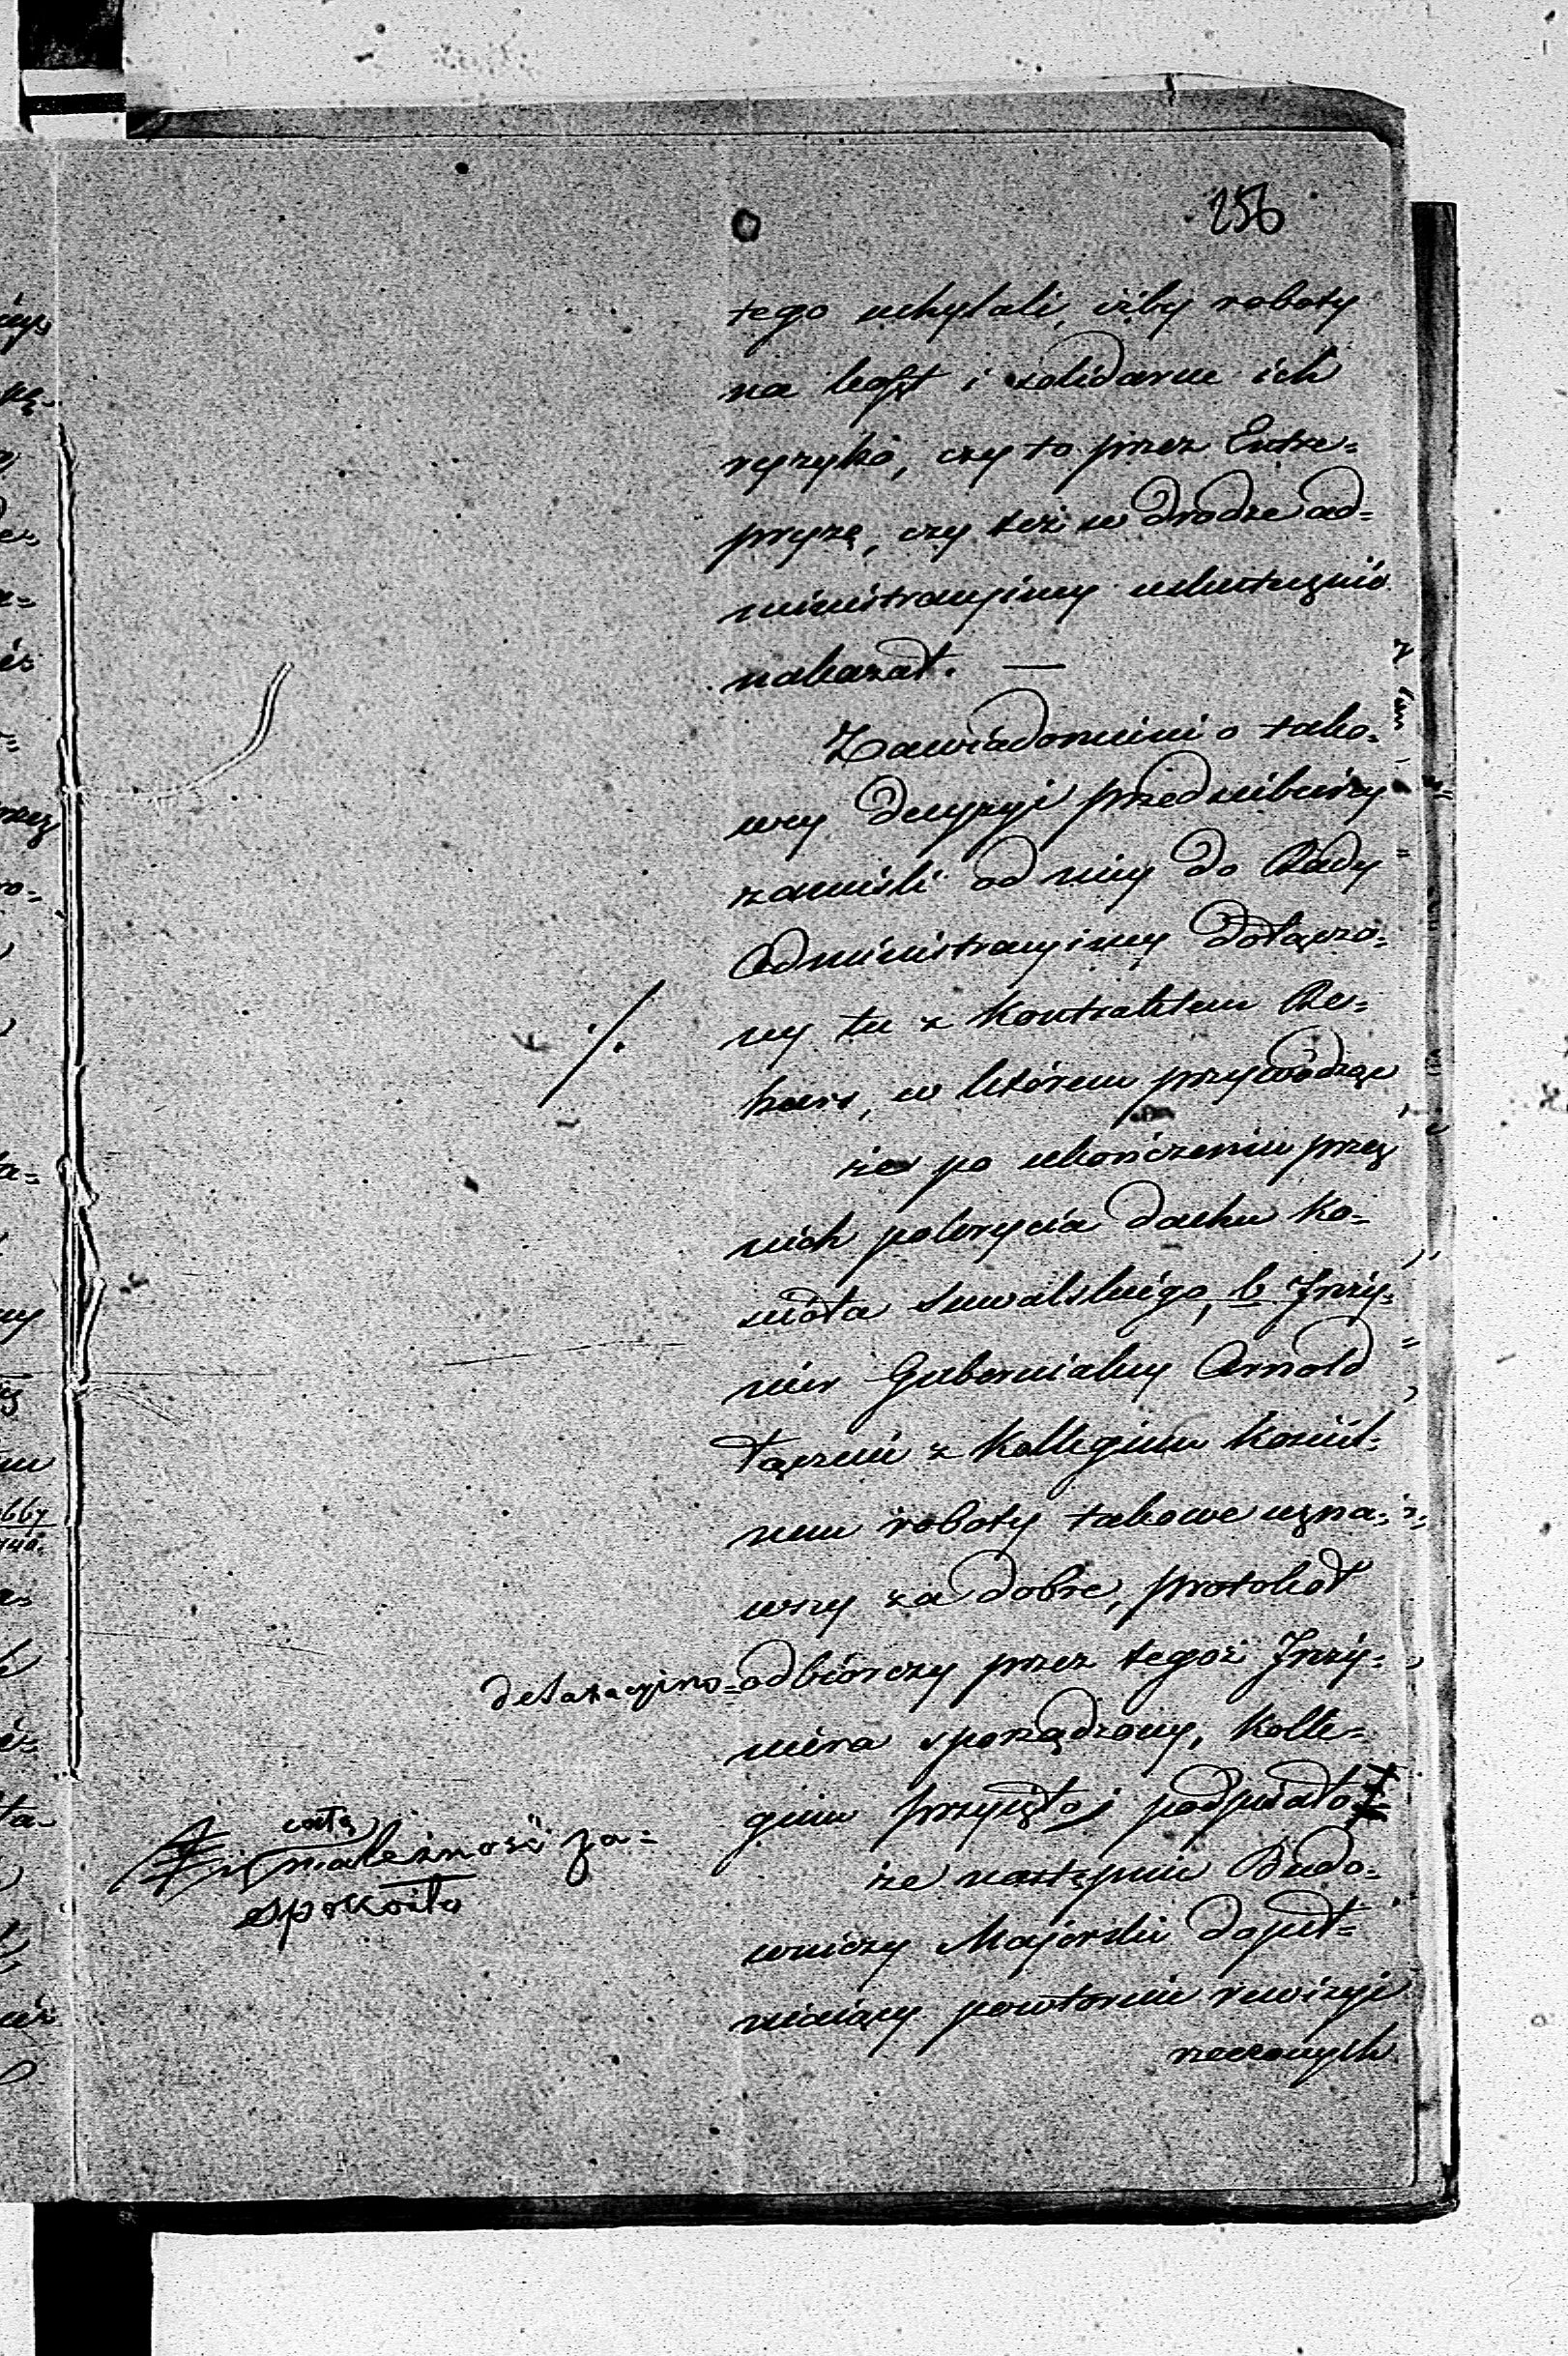 256
tego uchylali, iżby roboty
na koszt i solidarne ich
ryzyko, czy to przez Entre-
pryzę, czy też w drodze ad-
ministracyiney uskutecznić
nakazał. —
Zawiadomieni o tako-
wey decyzyi przedsiębiercy
zanieśli od niey do Rady
Administracyiney dołączo-
ny tu z kontraktem Re-
kurs, w którem przywodząc
że po ukończeniu przez
nich pokrycia dachu Ko-
ścioła Suwalskiego, b. Inży-
nier Gubernialny Arnold
łącznie z Kollegium Kościel-
nem roboty takowe uzna-
wszy za dobre, protokół
detaxacyjno-odbiorczy przez tegoż Inży-
niera sporządzony, Kolle-
gium przyjęło i podpisało
i całą należność za-
spokoiło
że następnie Budo-
wniczy Majerski dopeł-
niaiący powtornie rewizyi
rzeczonych